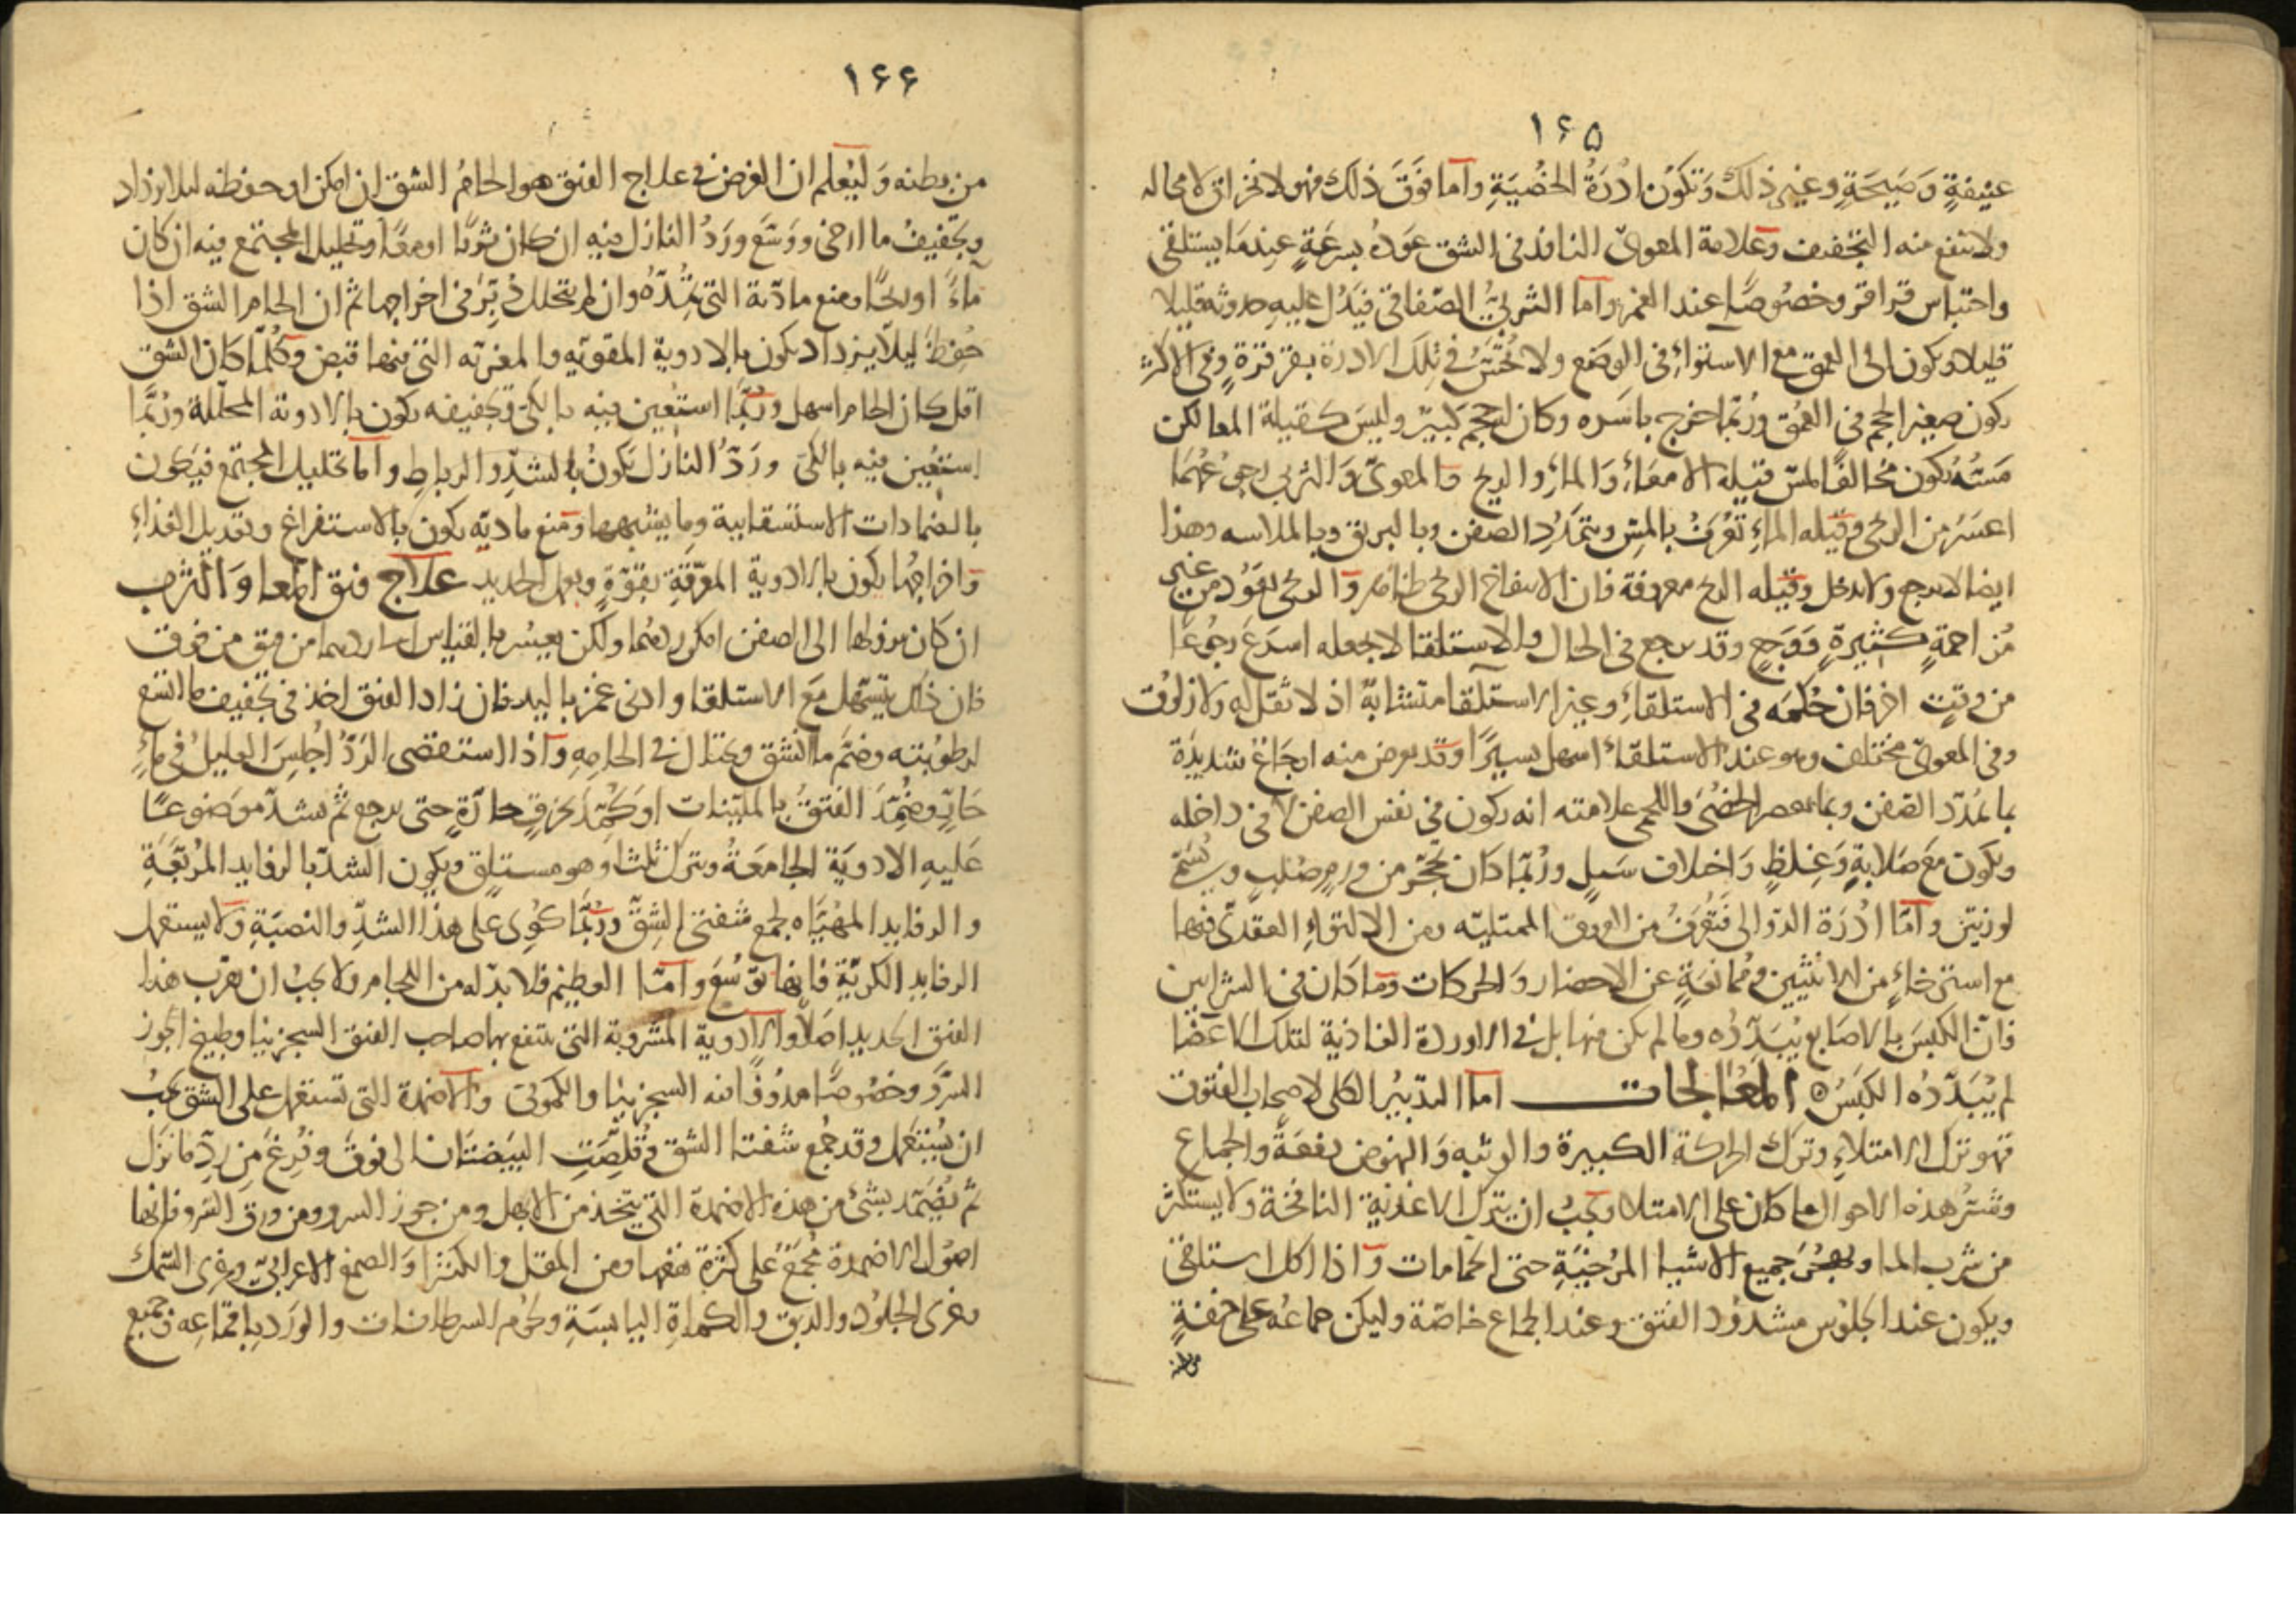 ١٦٥
عنيفةٍ وَصَيحَةٍ وغير ذلكَ وَتكوُن ادُرَةُ الخُصُيَةِ وآما فوَقَ ذلك فهى لانخراق لامحاله
ولاتنفع منه التخفيف وعلامة المعوىّ النافذ فى الشق عَودُه بسرعَةٍ عِندمَا يستلقى
واحتباس قراقر وخصُوصًا عند الغمز وآما الثربىُّ الصّفاقى فيَدُل عليهِ حدوثه قليلا
قليلا ويكون الى العمق مع الاستواءِ فى الوضَع ولا تُحَسُّ فى تِلكَ الادرة بقرقرةٍ وفى الاكثر
يكون صغير الحجم فى العُمق ورُبمّا خرج باسَره وكان لهُ حجم كبيرٌ وليسَ كقيلة المعا لكن
مَسّهُ يكون مُخالفًا لمسّ قيلة الامعَاءِ وَالماءِ والريح فالمعوىّ وَالثربى رجوعُهُمَا
اعسَرُ من الريحى وقيله الماءِ تعُرَفُ بالمسّ وبتمدُّدِ الصفن وبالبريق وبالملاسه وهذا
ايضا لايرجع ولايدخل وقيله الريح معروفة فان الانتفاخ الريحى ظاهر والريحى يعَوُد من غير
مُزاحمةٍ كثيرةٍ وَوَجعٍ وقد يرجع فى الحال والاستلقا لايجعله اسرَعَ رجُوعًا
من وقتٍ اخر فان حُكمَه فى الاستلقاءِ وغير الاستلقا متشابهٌ اذ لا ثقل له ولا زلوُق
وفى المعوىّ مختلف وهو عند الاستلقاءِ اسهل بسيرًا وقد يعرض منه اوجَاعٌ شديدَة
بما يمَدّد الصّفن وبما يعصر الخُصُىَ واللحمى علامته انه يكون فى نفس الصفن لا فى داخله
ويكوُن مَعَ صَلابةٍ وَغِلظٍ وَاختلاف شَكلٍ ورُبّما كان تحجّر من ورمٍ صُلبٍ ويُسَمّٰ
لورنيَن وآمّا ادُرَة الدّوالى فتُعرَفُ من العروق الممتليّه ومن الالتواءِ العقدىّ فيها
مع استرخاءٍ من الانثيين وممُانعَةٍ عن الاحضار وَالحركات وَما كان فى الشرايين
فانّ الكبسَ بالاصَابع يُبَدِّدُه وما لم يكن منها بل فى الاوردة الغاذية لتلك الاعضَا
لم يُبَدّدُه الكَبسُ المعُالجات امّا التدبيُر الكلى لاصحاب الفتوُق
فهو ترَك الامتلاءِ وترك الحركة الكبيرة والوثبه وَالنهوض دفعَةً والجماع
وشَرُّ هذه الاحوال ما كان على الامتلا ويَجبُ ان يترك الاغذيَة النافخة ولا يستكثر
من شرب الما ويهجُرَ جميع الاشيا المرُخيَةِ حتى الحمامات وَاذا اكل استلقى
ويكون عند الجلوُس مشدوُد الفتق وعند الجماع خاصّة وليكن جماعُه على خفةٍ
من بطنه
١٦٦
من بطنه وَليُعلم ان الغرض فى علاج الفتق هو الحامُ الشق ان امكن او حفظه ليلا يزداد
وتجفيفُ ما ارخى ووَسّعَ ورَدُّ النازل فيه ان كان ثربًا اومعًا وتحليل المجتمع فيه ان كان
مآءً او ريحًا ومنع مادّته التى تمُدّهُ وان لم يتحلل دُبّرَ فى اخراجها ثمّ ان الحام الشق اذا
حُفِظ ليلاّ يزداد يكون بالادوية المقويّه والمغريّه التى فيها قبض وكُلّما كان الشق
اقل كان الحام اسهل ورُبّمَا استعُين فيه بالكىّ وتجفيفه يكون بالادوية المحلّلة ورُبّمَا
استعُين فيه بالكىّ ورَدُّ النازل يَكونُ بالشدِّ والرباطِ وآما تحليل المجتمع فيَكون
بالضمادات الاستسقايية وما يشبهها ومَنع مادّته يكون بالاستفراغ وتعديل الغذاءِ
وَاخراجُها يكون بالادوية المعرّقةِ بقوّةٍ وبعمل الحديد علاج فتق المعا وَالثرب
ان كان نزولها الى الصفن امكن ردهما ولكن بعسُر بالقياس الى ردهما من فتق من فوق
فان ذلك يتسَهّل مَعَ الاستلقا وادنى غمز باليد فان زاد الفتق اخذ فى تجفيف ما اتسّع
لرطوُبته وضَمَّ ما انشق ويحتال فى الحامِهِ وآذا استعصى الرَدُّ اجُلِسَ العليلُ فى ماءٍ
حَارٍّ وضُمّدَ الفَتقُ بالمليّنات اوكمُّدَ بخرقٍ حارّةٍ حتى يرجع ثمّ يشدّ موَضوعًا
عَليهِ الادويَة الجامعَةُ ويترك ثلثا وَهو مستلقٍ ويكون الشدّ بالرفايد المرُبّعَةِ
والرفايد المهُيّاه لجمع شفتى الشِقّ ورُبّمَا كوُى على هذا الشدِّ والنصبَةِ وَلايستعمل
الرفايد الكريّةِ فانها توَسُّعَ وآمّا العظيم فلابدّ له من اللجام ولا يجبُ ان يقرب هذا
الفتق الحديد اصَلاً والادوية المشروبة التى ينتفع بها صاحب الفتق السجزينا وطبيخ الجوز
السَرّو وخصُوصًا مدوُفًا فيه السجزينا والكموُنى والاضمدة التى تستعمل على الشق يجبُ
ان يُستعمل وقد جُمعَ شفتا الشق وقُلِّصَتِ البيَضتَان الى فوَق وفُرغَ مِن رَدّ ما نَزل
ثمّ يُضمّد بشئ من هذه الاضمدة التى يتخذ من الابهل ومن جوز السرو ومن ورق السّرو فانها
اصُول الاضمدة مُجمَعٌ على كثرة نفعها ومن المقل والكثيرا وَالصمغ الاعرابىّ وغرى السّمك
وغرى الجلوُد والدبق والكماةِ اليابسَةِ ولحوُم السرطانات والوَرَد باقماعِه وجميع